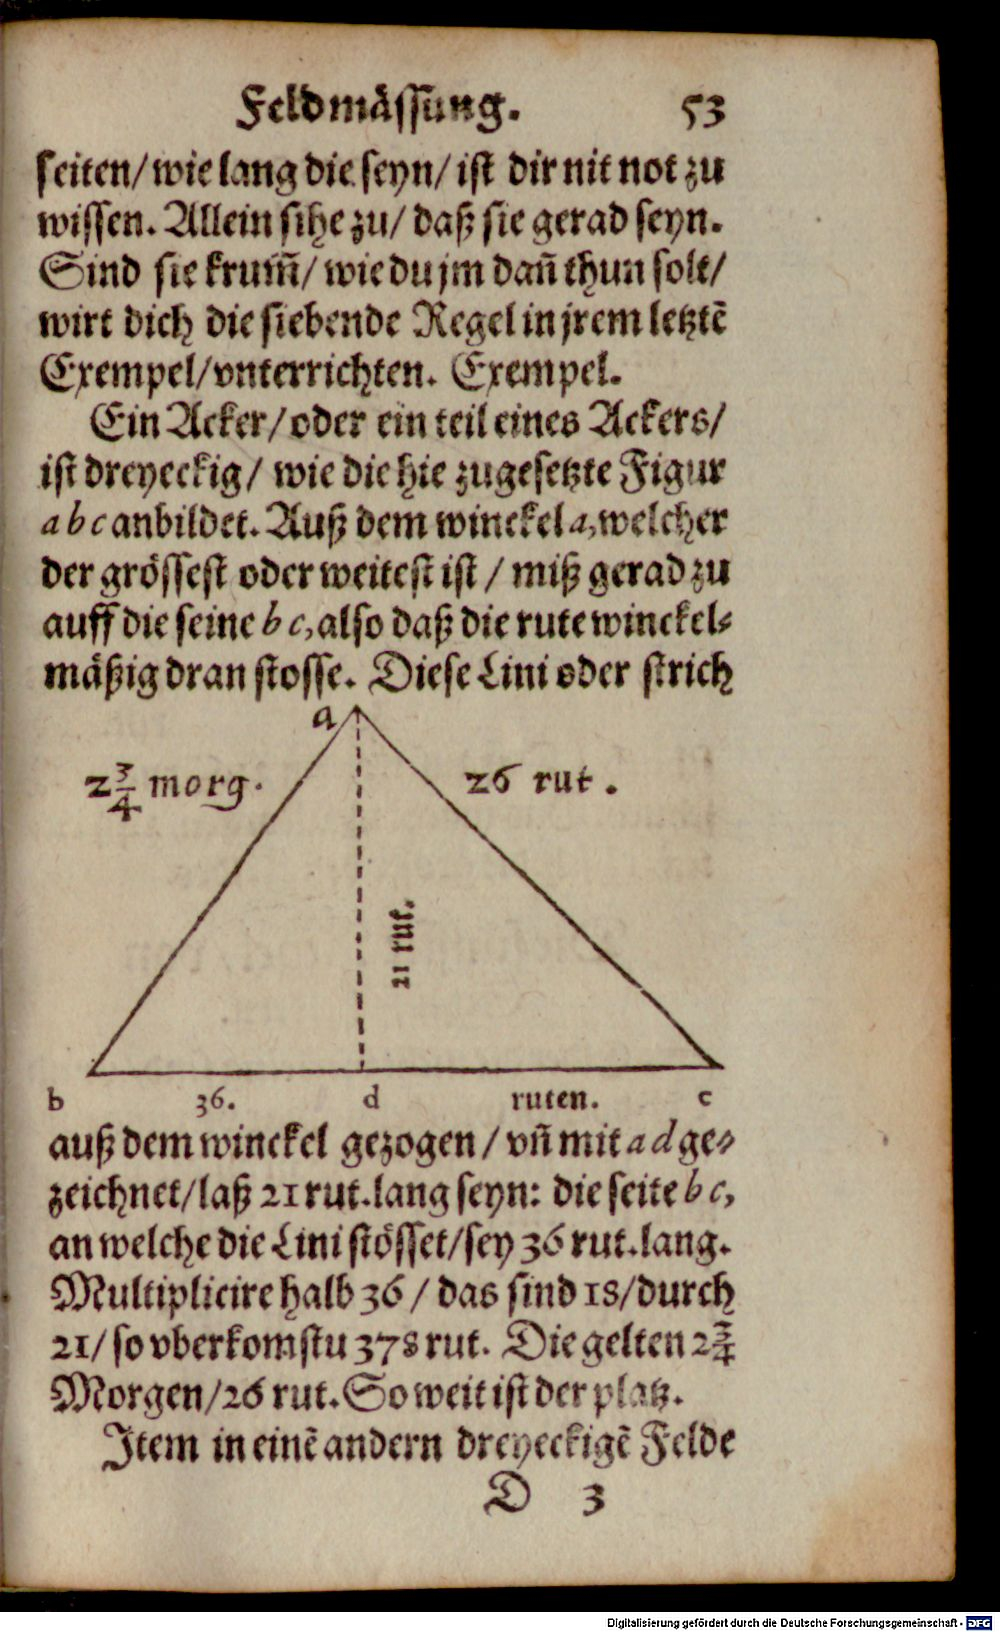 Feldmässung. 53
seiten/ wie lang die seyn/ ist dir nit not zu
wissen. Allein sihe zu/ daß sie gerad seyn.
Sind sie krum̄/ wie du jm dañ thun solt/
wirt dich die siebende Regel in jrem letztē
Exempel/ vnterrichten. Exempel.
Ein Acker/ oder ein teil eines Ackers/
ist dreyeckig/ wie die hie zugesetzte Figur
a b c anbildet. Auß dem winckel a, welcher
der grössest oder weitest ist / miß gerad zu
auff die seine b c, also daß die rute winckel⸗
mäßig dran stosse. Diese Lini oder strich
a
2 3/4 morg. 26 rut.
21 rut.
b 36. d ruten. c
auß dem winckel gezogen / vñ mit a d ge⸗
zeichnet/ laß 21 rut. lang seyn: die seite b c,
an welche die Lini stösset/ sey 36 rut. lang.
Multiplicire halb 36 / das sind 18/ durch
21/ so vberkomstu 378 rut. Die gelten 2 3/4
Morgen/ 26 rut. So weit ist der platz.
Item in einē andern dreyeckigē Felde
D 3
Digitalisierung gefördert durch die Deutsche Forschungsgemeinschaft - DFG